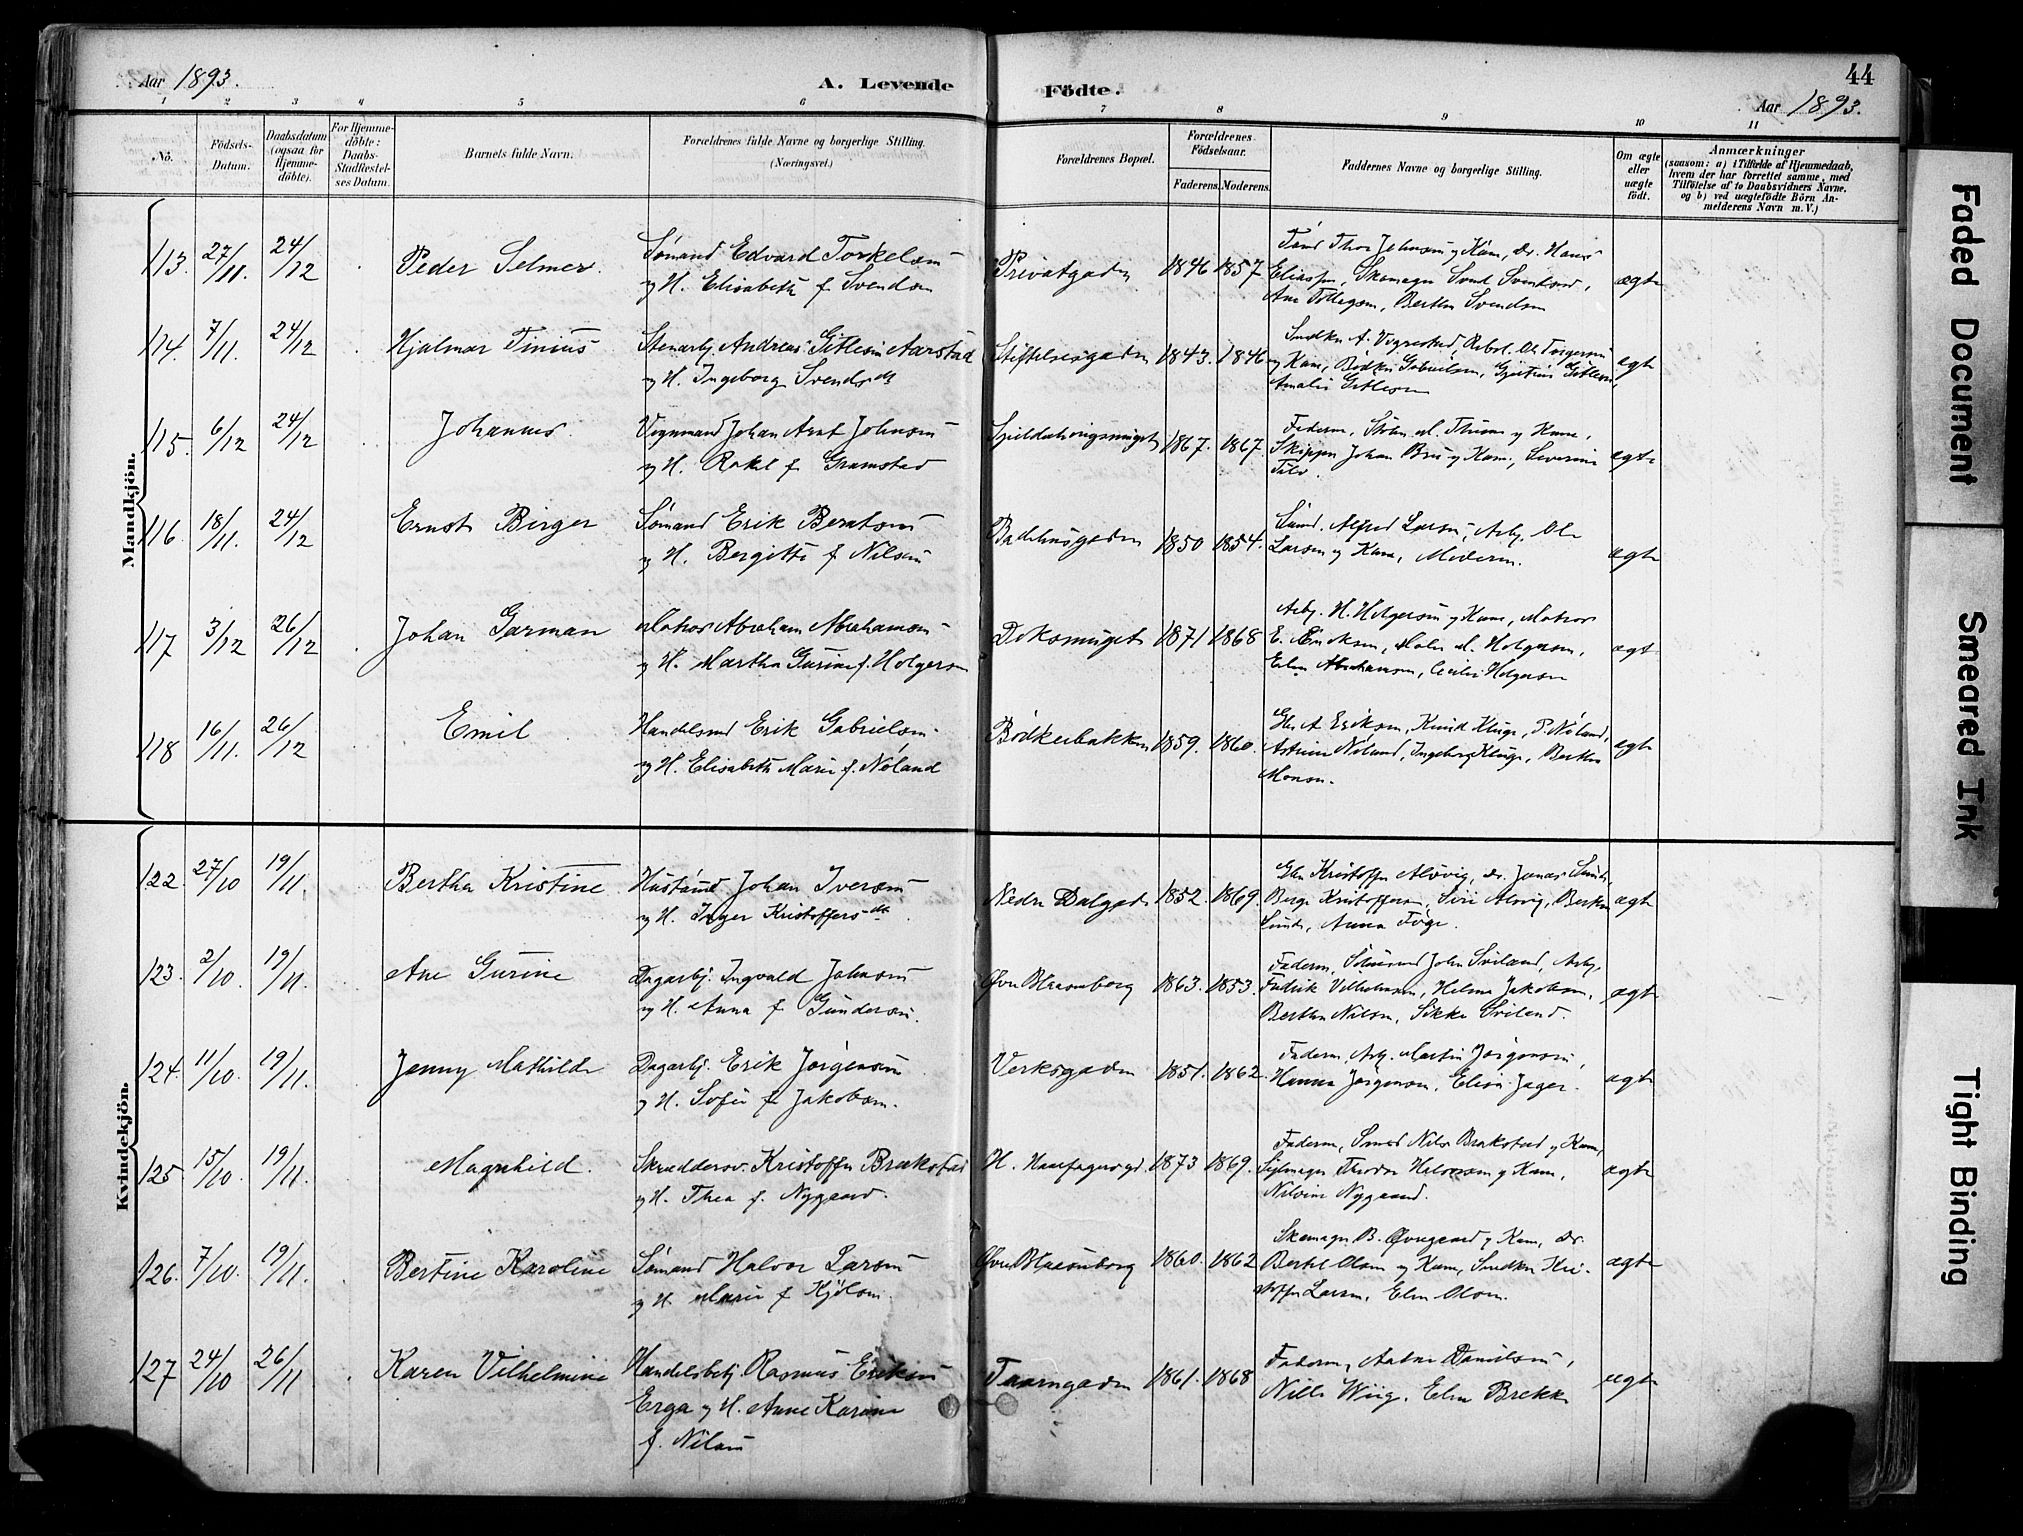 Aar 1893.
A. Levende Födte.
44
Aar 1893.
1 2 3 4 5 6 7 8 9 10 11
No.
Födsels-Datum.
Daabsdatum (ogsaa for Hjemmedöbte).
For Hjemmedöbte: Daabs-Stadfæstelses Datum.
Barnets fulde Navn.
Forældrenes fulde Navne og borgerlige Stilling.
(Næringsvei.)
Forældrenes Bopæl.
Forældrenes Födselsaar.
Faderens. Moderens.
Faddernes Navne og borgerlige Stilling.
Om ægte eller uægte födt.
Anmærkninger
(saasom: a) i Tilfælde af Hjemmedaab, hvem der har forrettet samme, med Tilföielse af to Daabsvidners Navne, og b) ved uægtefödte Börn Anmelderens Navn m. V.)
Mandkjön.
113. 27/11. 24/12 Peder Selmer. Sømand Edvard Torkelsen
og H. Elisabeth f. Svendsen
Privatgaden 1846 1857
Thor Johnsen og Kone, Dr. Hans
Eliassen, Skomager Svend Svendsen,
Ane Tollegsen, Berthe Svendsen
ægte
114. 7/11. 24/12 Hjalmar Tinius Stenarbj. Andreas Gitlesen Aarstad
og H. Ingeborg Svendsdt
Stiftelsesgaden 1843. 1846
Snedker A. Vigrestad, Torgersen
og Kone, Bødker Gabrielsen, Gitlesen,
Amalie Gitlesen
ægte
115. 6/12 24/12 Johannes. Vognmand Johan Arnt Johnsen
og H. Rakel f. Gramstad
1867. 1867.
Faderen, Thime og Kone,
Skipper Johan Bru og Kone, Severine
ægte
116. 18/11. 24/12 Ernst Birger Sømand Erik Berntsen
og H. Bergitte f. Nilsen
Badehusgaden 1850 1854.
Alfred Larsen, Arbj. Ole
Larsen og Kone, Moderen.
ægte
117 3/12 26/12 Johan Garman Matros Abraham Abrahamsen
og H. Martha Gurine f. Holgersen
Doksmuget 1871 1868
Arbj. H. Holgersen og Kone, Matros
E. Eriksen, Holgersen,
Elen Abrahamsen, Cecilie Holgersen
ægte
118 16/11. 26/12 Emil Handelsmd Erik Gabrielsen
og H. Elisabeth Marie f. Nøland
Bødkerbakken 1859. 1860.
A Eriksen, Knud Kluge, P. Nøland,
Nøland, Ingeborg Kluge, Berthe
Monsen.
ægte
Kvindekjön.
122. 27/10 19/11. Bertha Kristine Johan Iversen
og H. Inger Kristoffersdt
Nedre Dalgade 1852. 1869.
Kristoffer Alsvig, dr. Jonas Sunde,
Berge Kristoffersen, Siri Alsvig, Berthe
Sunde, Anna
ægte
123. 2/10. 19/11 Ane Gurine Dagarbj. Ingvald Johnsen
og H. Anna f. Gundersen.
Øvre Blaasenborg 1863. 1853.
Faderen, John Sviland, Arbj.
Fredrik Vilhelmsen, Helene Jakobsen,
Berthe Nilsen, Sikke Sviland.
ægte
124. 11/10. 19/11. Jenny Mathilde Dagarbj. Erik Jørgensen
og H. Sofie f. Jakobsen.
Verksgaden 1851. 1862.
Faderen, Arbj. Martin Jørgensen,
Hanna Jørgensen, Elise Jager.
ægte
125. 15/10. 19/11. Magnhild. Skræddersv. Kristoffer Brakstad
og H. Thea f. Nygaard.
H. Haarfagersgd. 1873 1869.
Faderen, Smed Nils Brakstad og Kone,
Seilmager Theodor Halvorsen og Kone,
Nilsine Nygaard.
ægte
126. 7/10. 19/11. Bertine Karoline Sømand Halvor Larsen
og H. Marie f. Kjølsen.
Øvre Blaasenborg 1860. 1862
Skomager B. Øvregaard og Kone, Dr.
Bertel Olsen og Kone, Snedker Kri-
stoffer Larsen, Elen Olsen.
ægte
127 24/10 26/11 Karen Vilhelmine Handelsbetj. Rasmus Eriksen
Erga og H. Anne Karine
f. Nilsen
Taarngaden 1861. 1868
Faderen, Danielsen,
Nille Wiig, Elen Brekke
ægte
Faded Document
Smeared Ink
Tight Binding